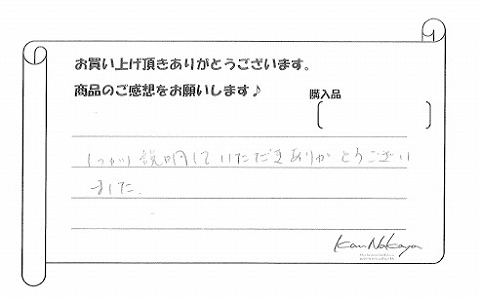 お買い上げ頂きありがとうございます。
商品のご感想をお願いします♪
購入品
しっかり説明していただきありがとうござい
ました。
KanNakaya